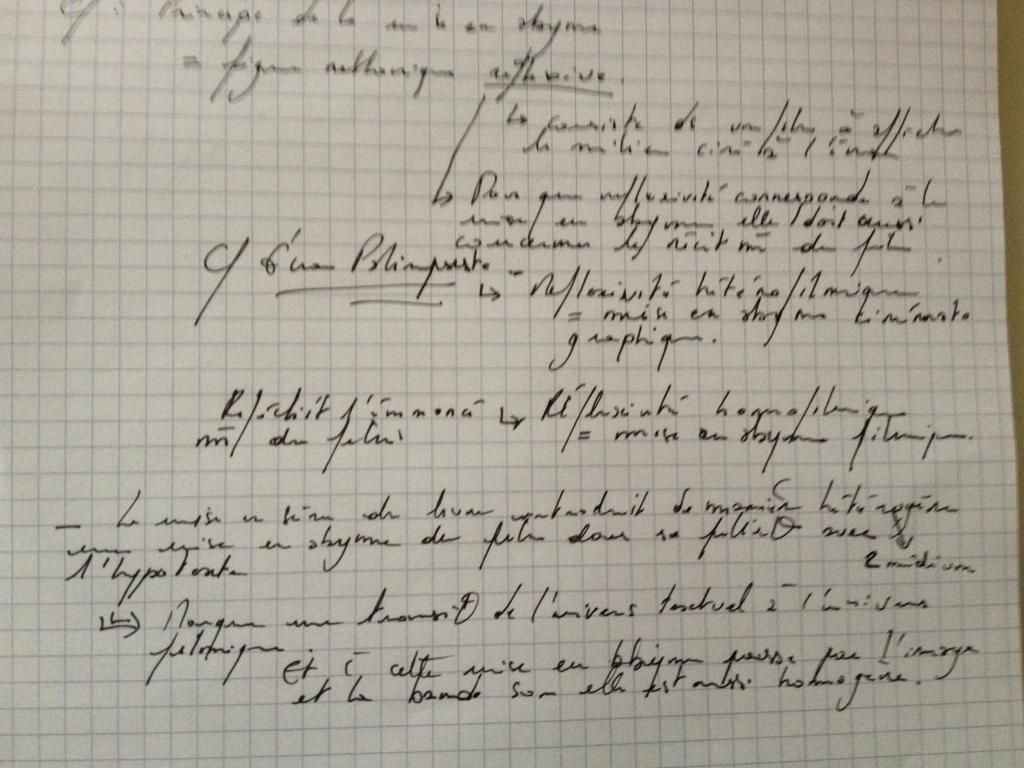 Principe de la mise en abyme
= figure rethorique reflexive.
↳ consiste de un film à afficher
le milieu ciné à l'écran
↳ Pour que reflexivité corresponde à la
mise en abyme elle doit aussi
concerner le récit m̄ du film.
C/ Écran Palimpseste
↳ Reflexivité hétérofilmique
= mise en abyme cinémato
graphique.
Réfléchit l'énnoncé ↳ Réflexivité homofilmique
m̄ du film = mise en abyme filmique.
- La mise en scène du livre introduit de manière hétérogène
une mise en abyme du film dans sa filiatO avec
l'hypotexte 2 médium
↳ Marque une transitO de l'univers textuel à l'univers
filmique.
Et cette mise en abyme passe par l'image
et la bande son elle est aussi homogène.